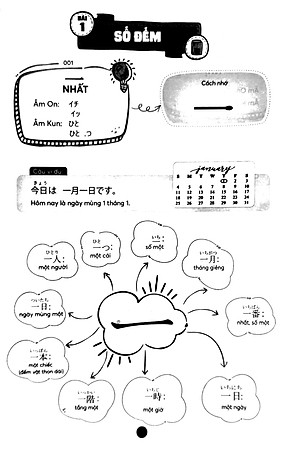 BÀI
1
SỐ ĐẾM
001
一
NHẤT
Âm On: イチ
イッ
Âm Kun: ひと
ひと .つ
Cách nhớ
Câu ví dụ
きょう
今日は 一月一日です。
Hôm nay là ngày mùng 1 tháng 1.
january
S M T W T F S
1 2 3
4 5 6 7 8 9 10
11 12 13 14 15 16 17
18 19 20 21 22 23 24
25 26 27 28 29 30 31
ひとり
一人:
một người
ひと
一つ:
một cái
いち
一:
số một
いちがつ
一月:
tháng giêng
ついたち
一日:
ngày mùng một
一
いちばん
一番:
nhất, số một
いっぽん
一本:
một chiếc
(đếm vật thon dài)
いっかい
一階:
tầng một
いちじ
一時:
một giờ
いちにち
一日:
một ngày